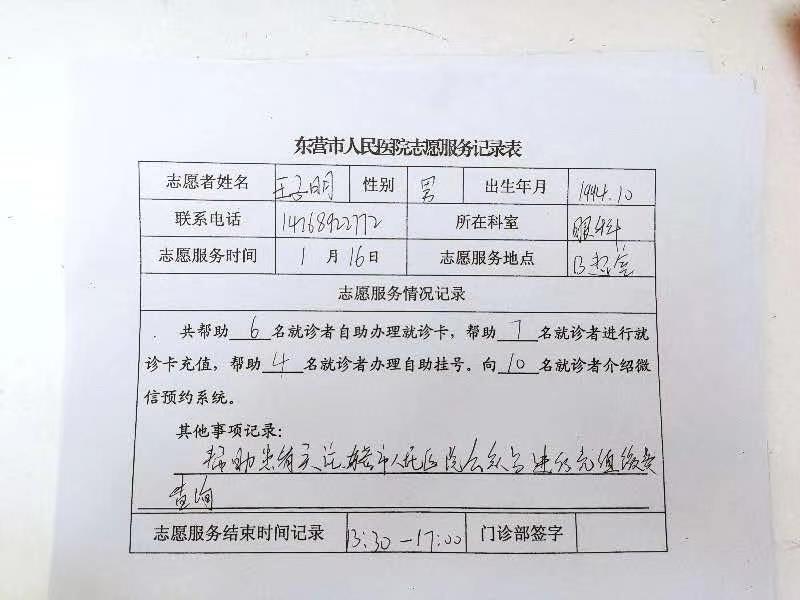 东营市人民医院志愿服务记录表
志愿者姓名 明 性别 男 出生年月 1994.10
联系电话 14768922772 所在科室 眼科
志愿服务时间 1 月 16 日 志愿服务地点 B超室
志愿服务情况记录
共帮助 6 名就诊者自助办理就诊卡，帮助 7 名就诊者进行就
诊卡充值，帮助 4 名就诊者办理自助挂号。向 10 名就诊者介绍微
信预约系统。
其他事项记录：
帮助患者关注东营市人民医院公众号进行充值缴费
查询
志愿服务结束时间记录 13:30—17:00 门诊部签字